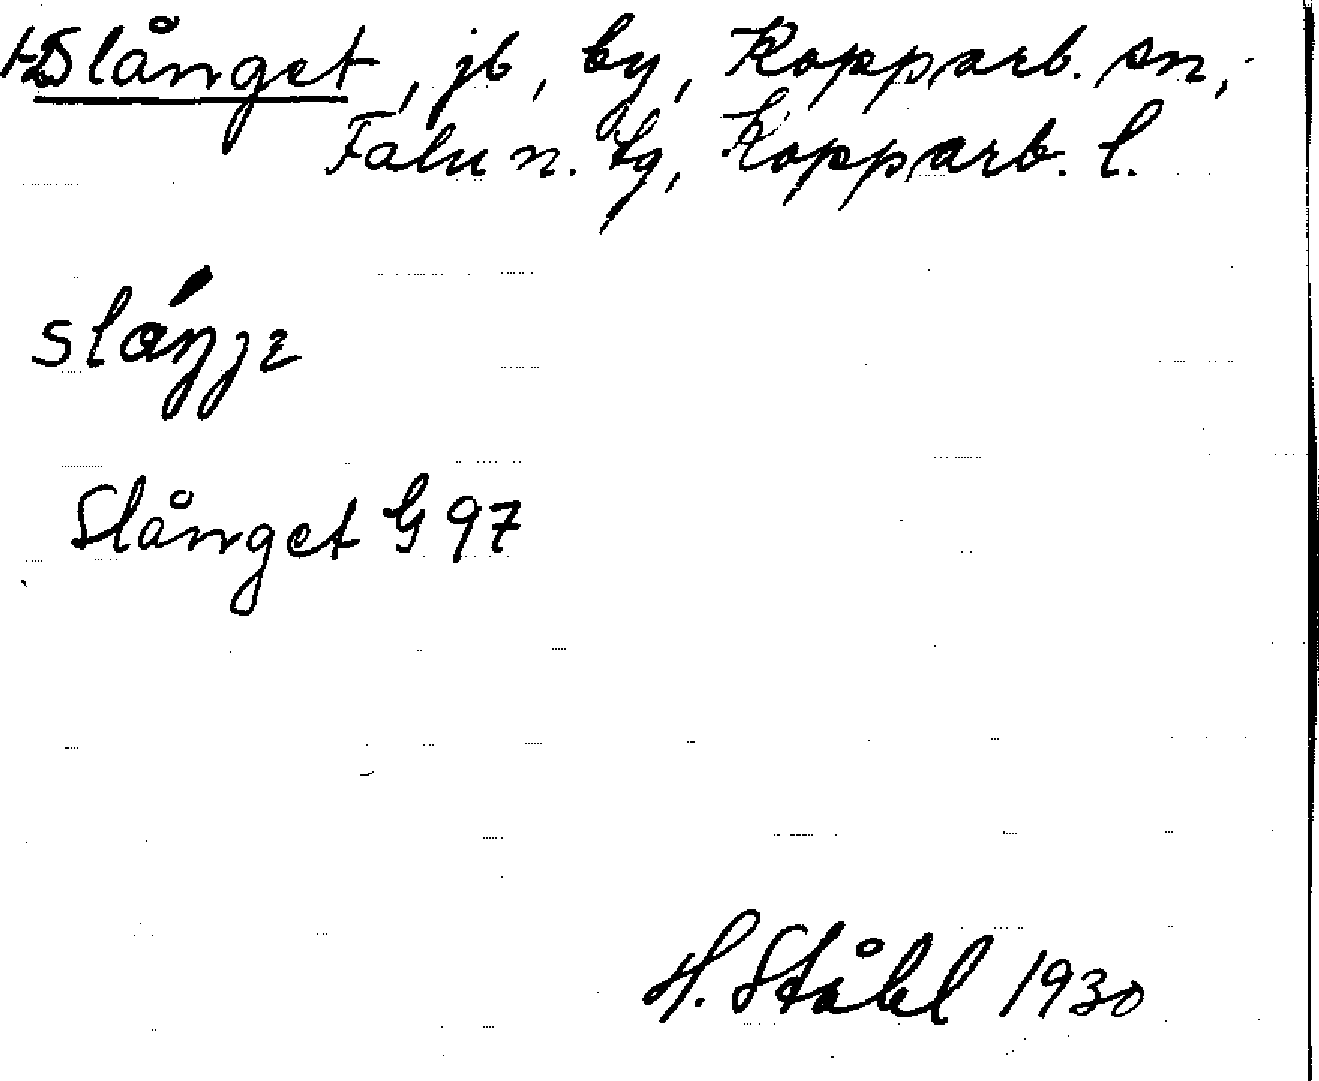 Slånget, jb, by, Kopparb. sn,
Falu n. tg, Kopparb. l.
Slånget G 97
H. Ståhl 1930